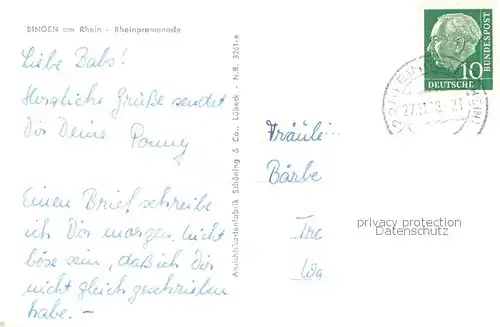 BINGEN am Rhein - Rheinpromenade
Liebe Babs!
Herzliche Grüße sendet
Dir Deine Ponny
Einen Brief schreibe
ich Dir morgen, nicht
böse sein, daß ich Dir
nicht gleich geschrieben
habe. -
Ansichtskartenfabrik Schöning & Co., Lübeck - N.R. 3261-e
10
DEUTSCHE
BUNDESPOST
Fräulei
Bärbe
privacy protection
Datenschutz